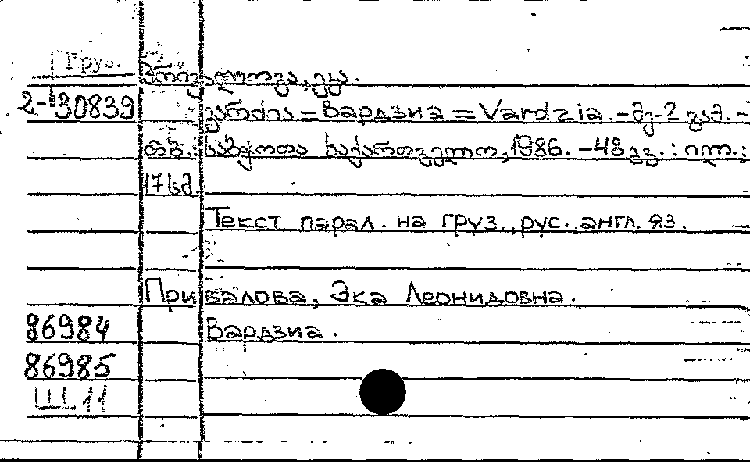 Груз.
პრივალოვა, ეკა.
2-30839 ვარძია = Вардзиа = Vardzia. - მე-2 გამ. -
თბ.: საბჭოთა საქართველო, 1986. - 48 გვ.: ილ.;
17 სმ.
Текст парал. на груз., рус., англ. яз.
Привалова, Эка Леонидовна.
86984 Вардзиа.
86985
Ш 11